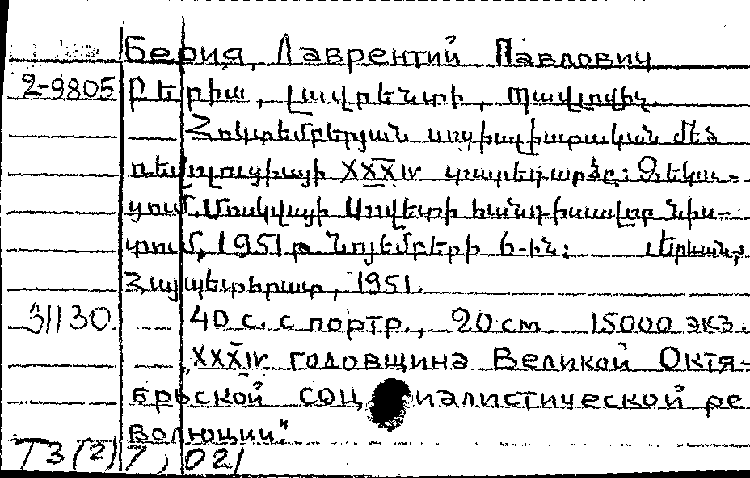 Берия, Лаврентий Павлович
2-9805 Բերիա, Լավրենտի, Պավլովիչ
Հոկտեմբերյան սոցիալիստական մեծ
ռեվոլուցիայի XXXIV տարեդարձը: Զեկու-
ցում Մոսկվայի Սովետի հանդիսավոր նիս-
տում, 1951 թ. նոյեմբերի 6-ին: Երևան,
Հայպետհրատ, 1951.
31130. 40 с. с портр., 20 см. 15000 экз.
„XXXIV годовщина Великой Октя-
брьской социалистической ре
волюции".
Т3(2)7, 021